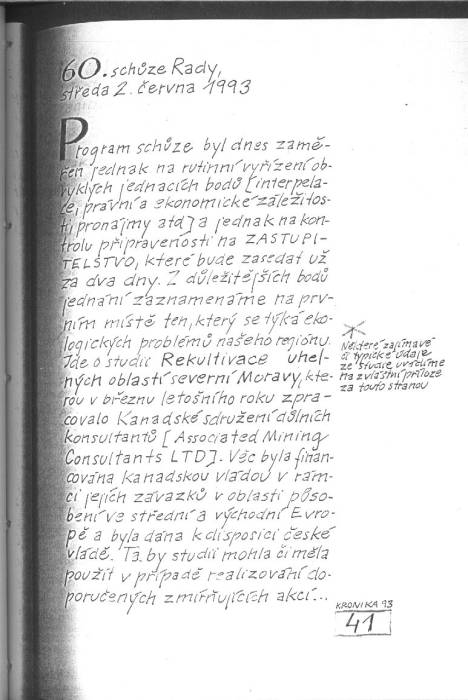 60. schůze Rady,
středa 2. června 1993
Program schůze byl dnes zamě-
řen jednak na rutinní vyřízení ob-
vyklých jednacích bodů [interpela-
ce, právní a ekonomické záležitos-
ti, pronájmy atd] a jednak na kon-
trolu připravenosti na ZASTUPI-
TELSTVO, které bude zasedat už
za dva dny. Z důležitějších bodů
jednání zaznamenáme na prv-
ním místě ten, který se týká eko-
logických problémů našeho regiónu.
Jde o studii Rekultivace uhel-
ných oblastí severní Moravy, kte-
rou v březnu letošního roku zpra-
covalo Kanadské sdružení důlních
konsultantů [Associated Mining
Consultants LTD]. Věc byla finan-
cována kanadskou vládou v rám-
ci jejích závazků v oblasti půso-
bení ve střední a východní Evro-
pě a byla dána k disposici české
vládě. Ta by studii mohla či měla
použít v případě realizování do-
poručených zmírňujících akcí...
Některé zajímavé
či typické údaje
ze studie uvádíme
na zvláštní příloze
za touto stranou
KRONIKA 93
41